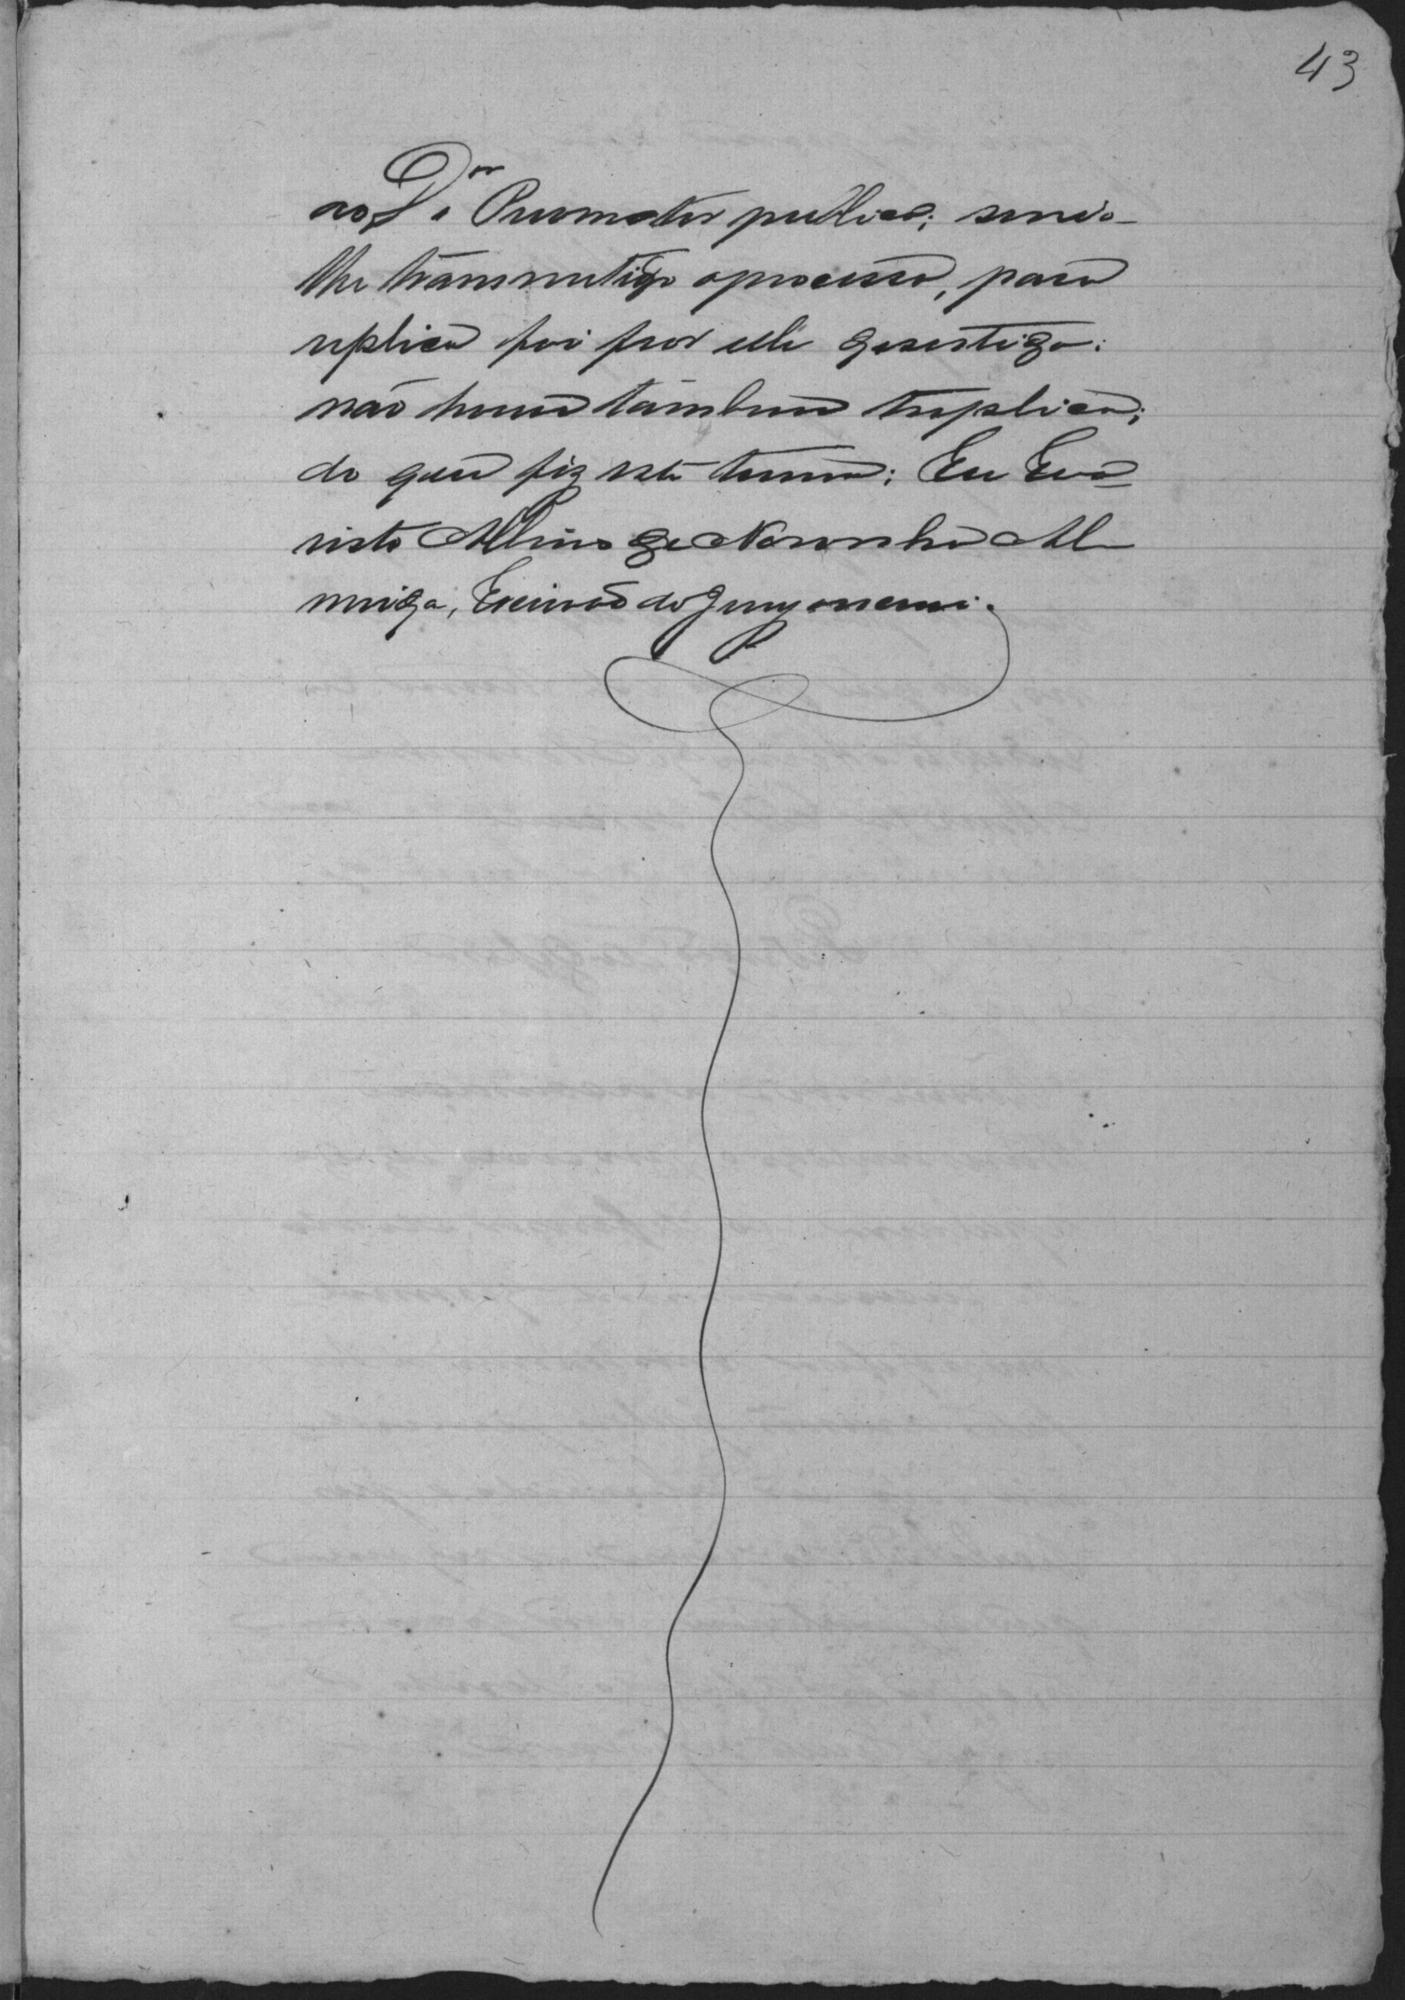 43
ao Dor Promotor publico; sendo-
lhe transmittido o processo, para
replica foi por elle desestido:
não houve tambem treplica;
do que fiz este termo; Eu Eva=
risto Albino de Noronha Al-
meida, Escrivão do Jury o escrevi.